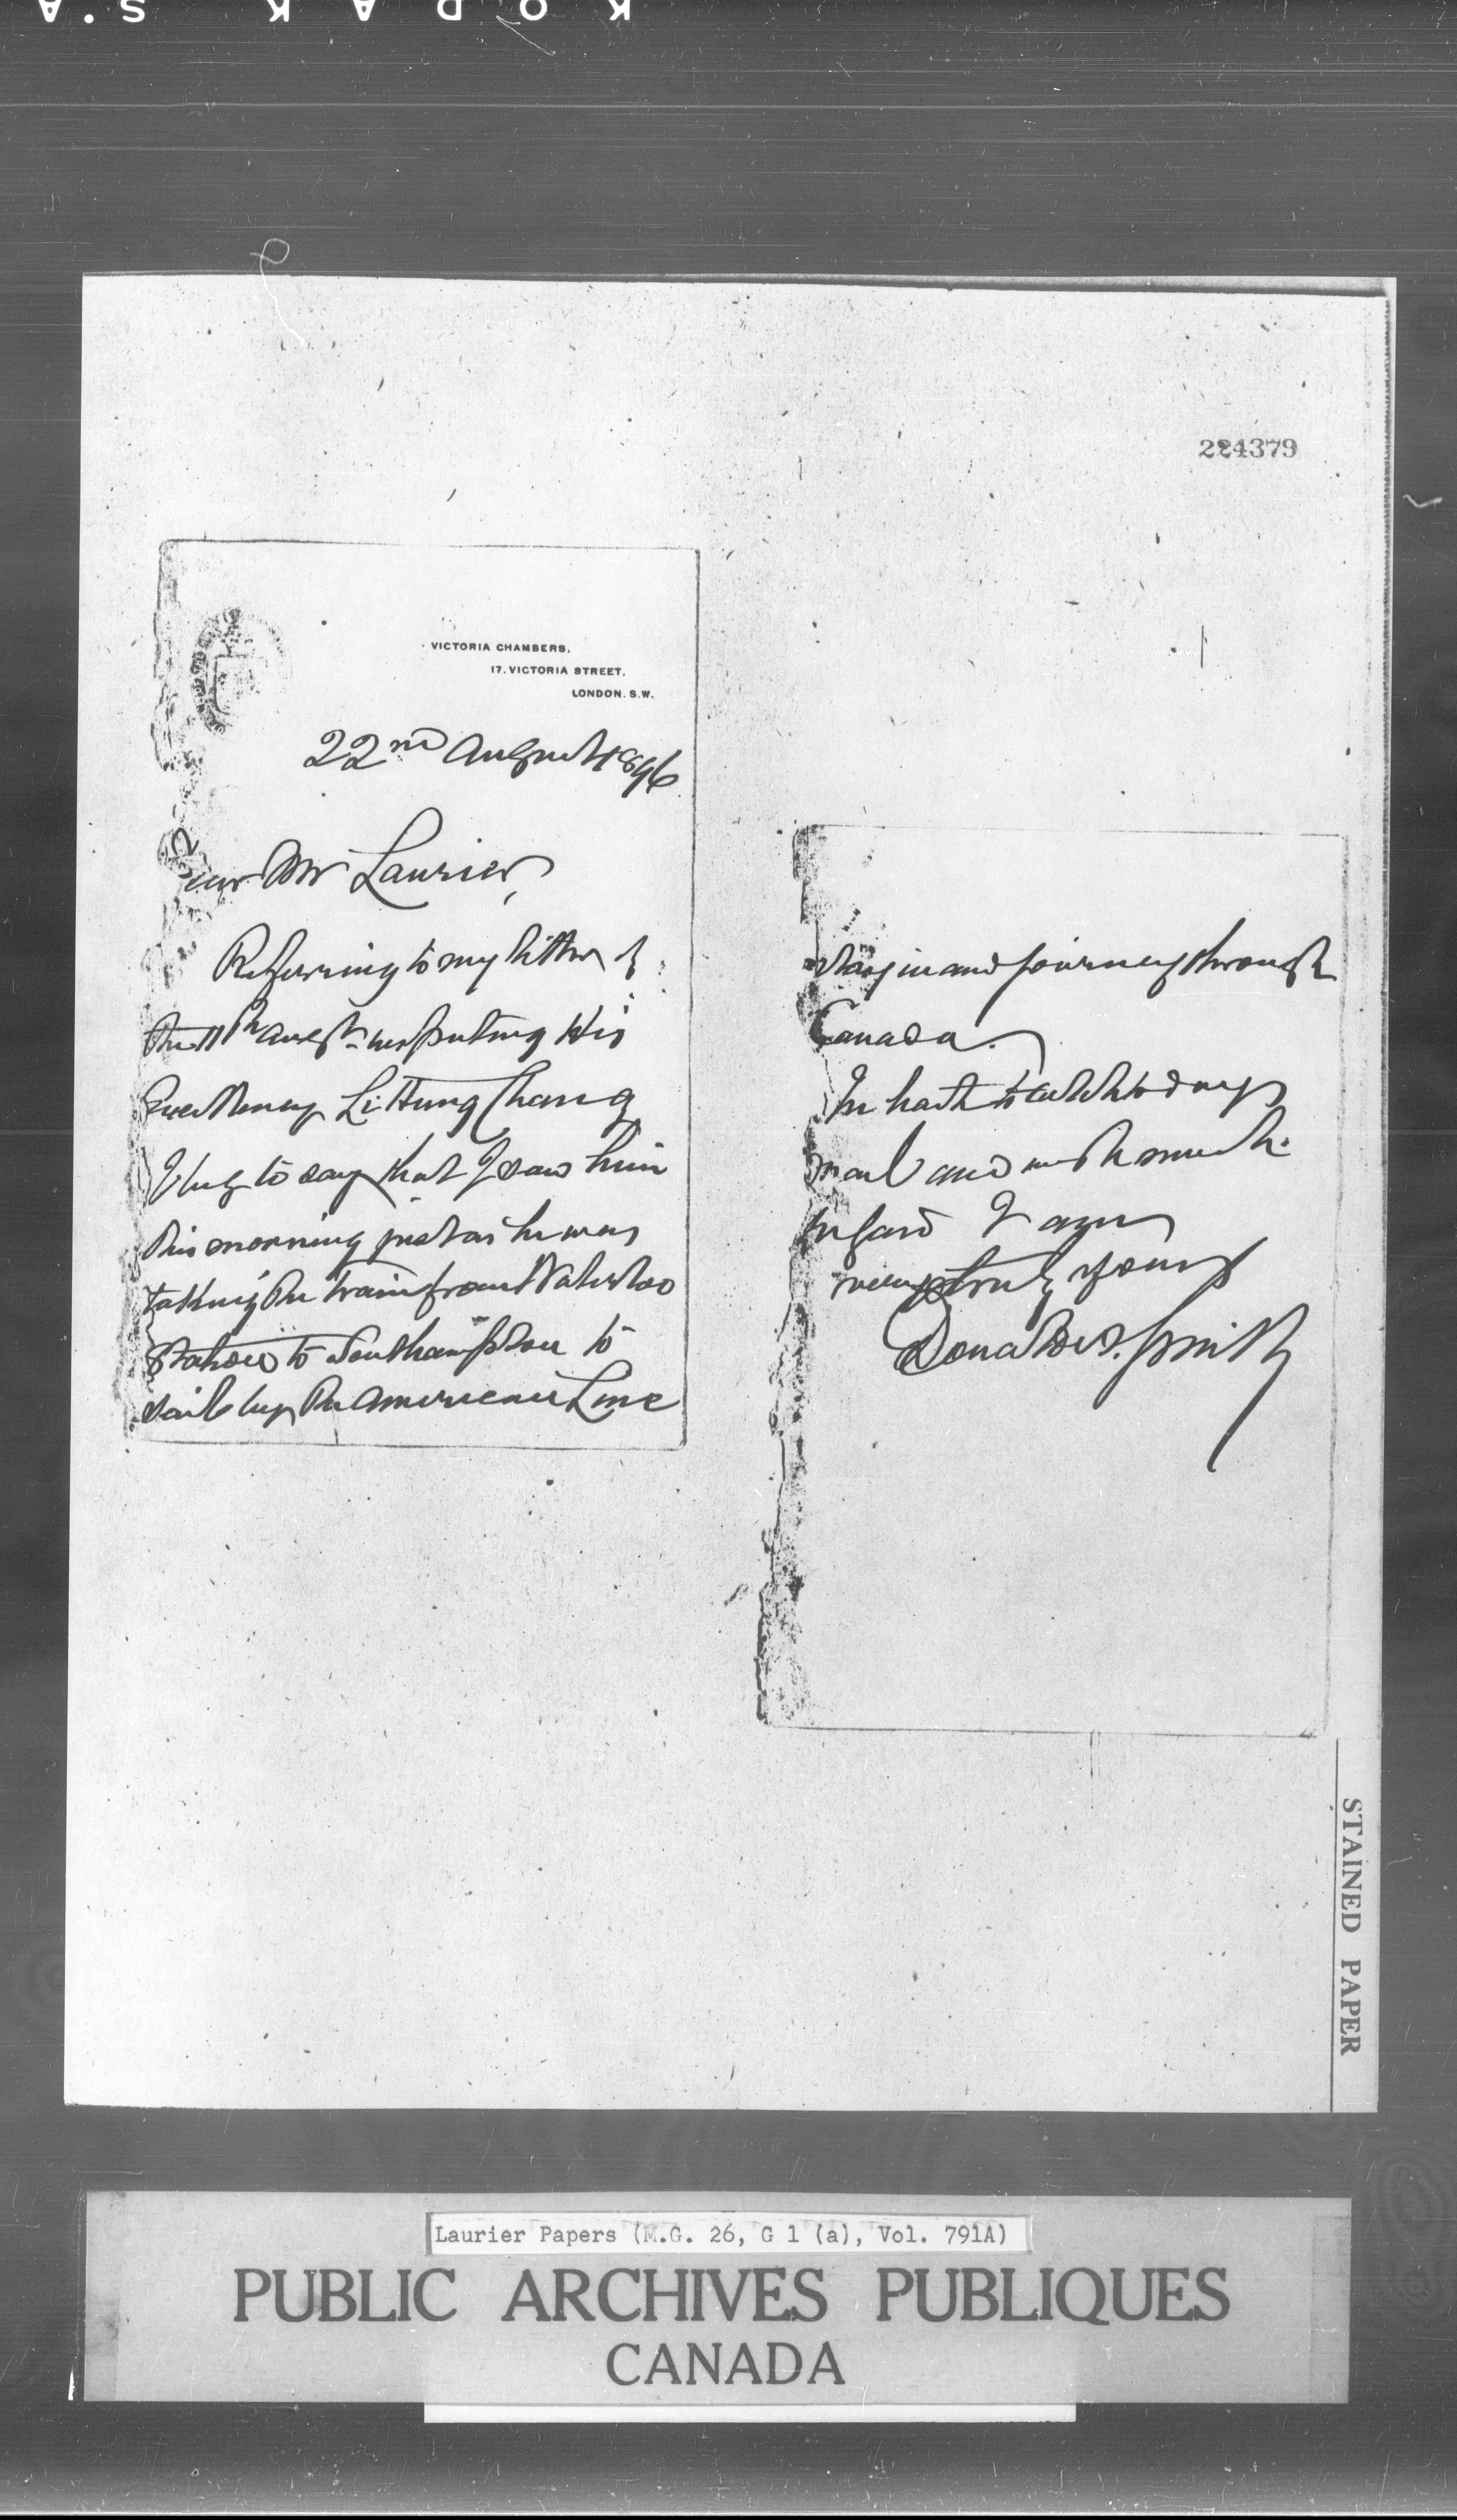 KODAK S.A
224379
VICTORIA CHAMBERS,
17. VICTORIA STREET.
LONDON. S.W.
22nd August 1896
Dear Mr Laurier,
Referring to my letter of
the 11th Augst. respecting His
Excellency Li Hung Chang
I beg to say that I saw him
this morning just as he was
taking the train from Waterloo
Station to Southampton to
sail by the American Line
stay in and journey through
Canada.
In haste to catch todays
mail and with much
regard I am
very truly yours
Donald A. Smith
STAINED PAPER
Laurier Papers (M.G. 26, G 1 (a), Vol. 791A)
PUBLIC ARCHIVES PUBLIQUES
CANADA